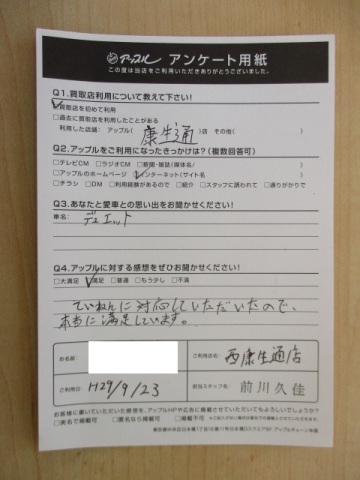 アップル アンケート用紙
この度は当店をご利用いただきありがとうございました。
Q1.買取店利用について教えて下さい!
☑買取店を初めて利用
□過去に買取店を利用したことがある
利用した店舗: アップル( 康生通 )店 その他( )
Q2.アップルをご利用になったきっかけは?(複数回答可)
□テレビCM □ラジオCM □新聞・雑誌(媒体名/ )
□アップルのホームページ ☑インターネット(サイト名 )
□チラシ □DM □利用経験があるので □紹介 □スタッフに誘われて □通りがかりで
Q3.あなたと愛車との思い出をお聞かせください!
車名: デュエット
Q4.アップルに対する感想をぜひお聞かせください!
□大満足 ☑満足 □普通 □もう少し □不満
ていねんに対応していただいたので、
本当に満足しています。
お名前
ご利用店名: 西康生通店
ご利用日: H29/9/23
担当スタッフ名: 前川久佳
お客様に書いていただいた感想を、アップルHPや広告に掲載させていただいてもよろしいでしょうか?
□実名で掲載可 □匿名なら掲載可 □掲載不可